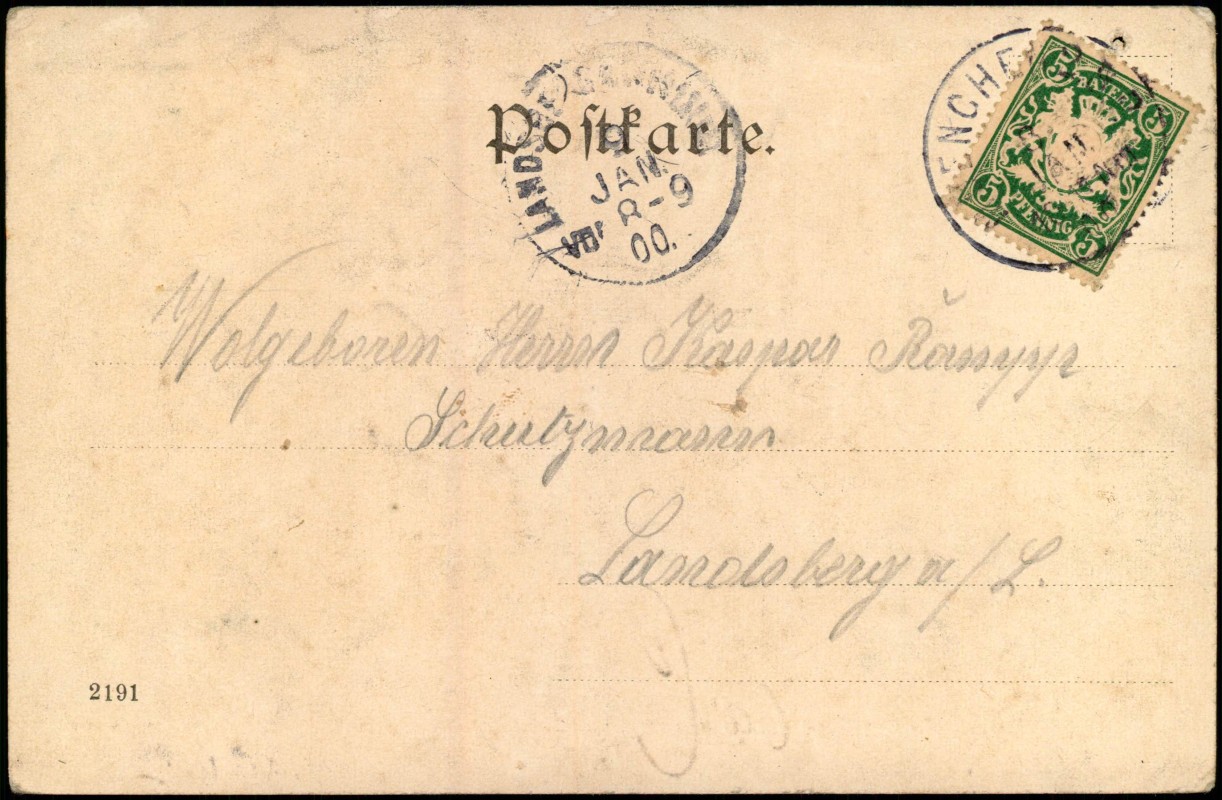 Postkarte.
LANDSBERG
JAN.
8-9
00.
5 BAYERN 5
5 PFENNIG 5
Wolgeboren Herrn Kaspar
Schutzmann
Landsberg a/L.
2191